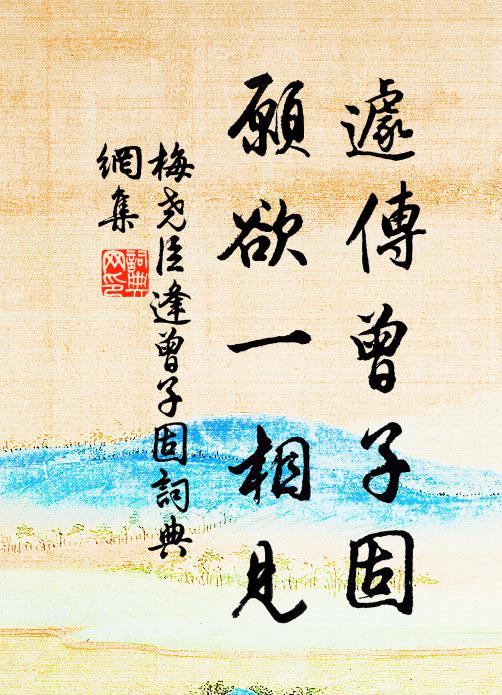 遽傳曾子固
願欲一相見
梅堯臣逢曾子固詞典
網集
詞典
网印